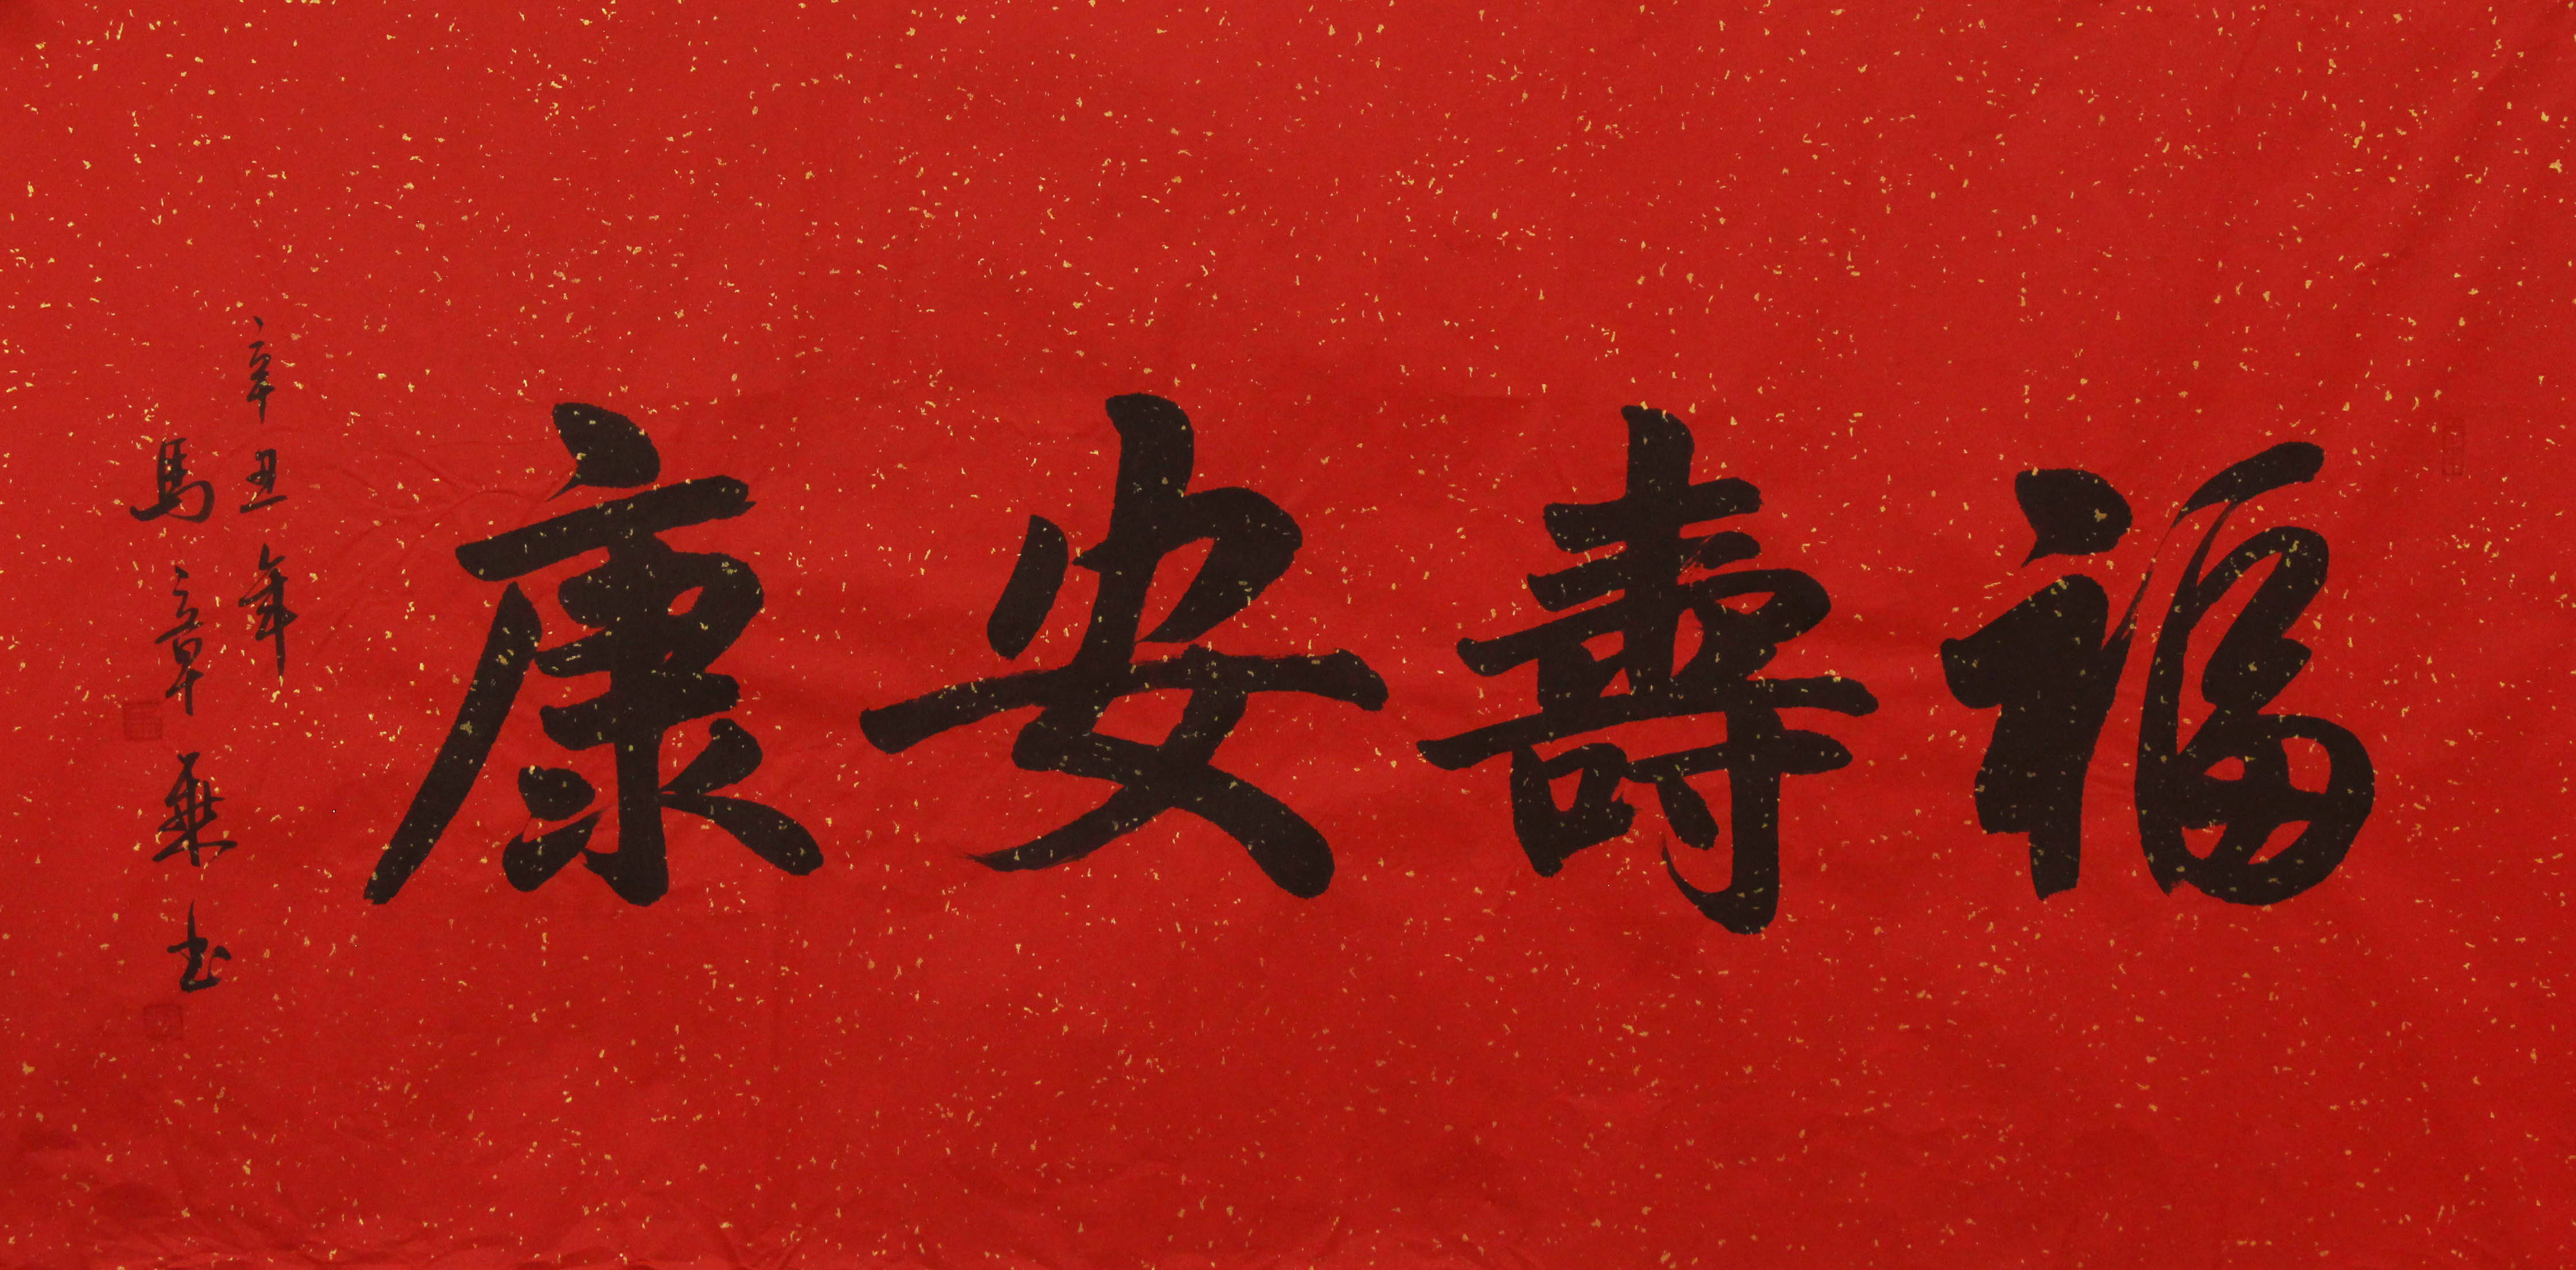 福壽安康
辛丑年
馬章乘书